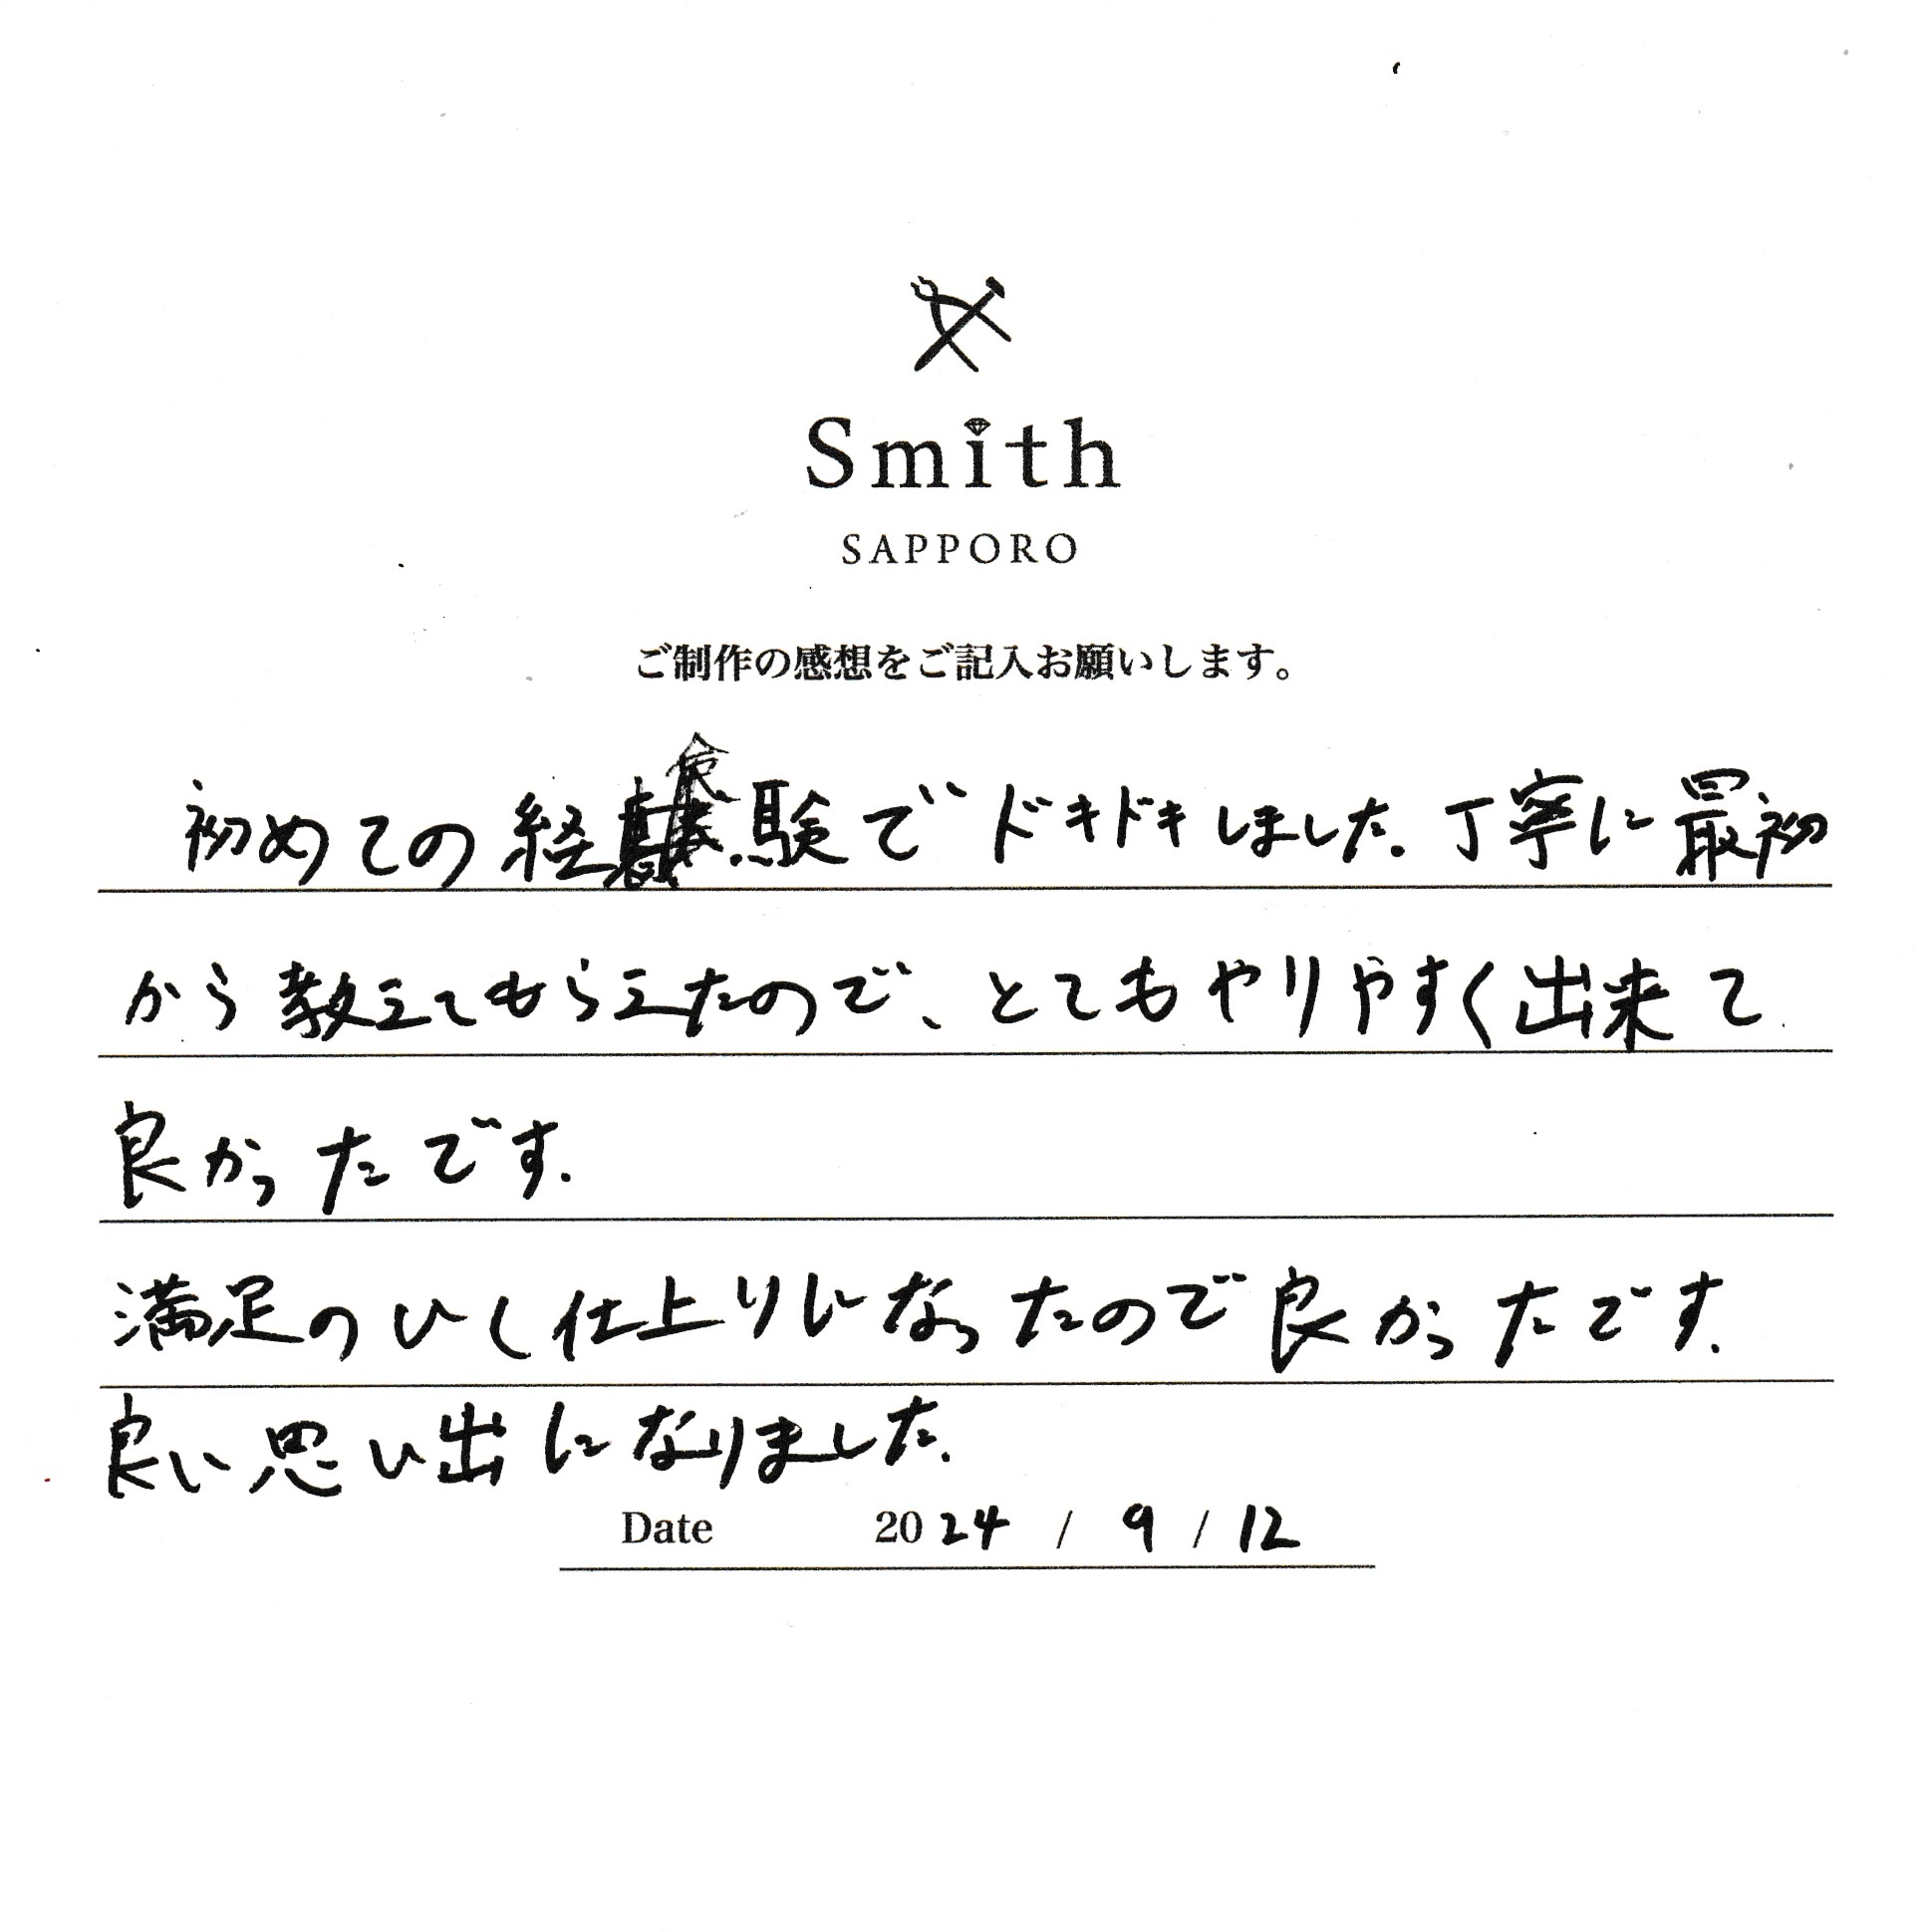 Smith
SAPPORO
ご制作の感想をご記入お願いします。
初めての経験でドキドキしました.丁寧に最初
から教えてもらえたので、とてもやりやすく出来て
良かったです.
満足のいく仕上りになったので良かったです.
良い思い出になりました.
Date 2024 / 9 / 12